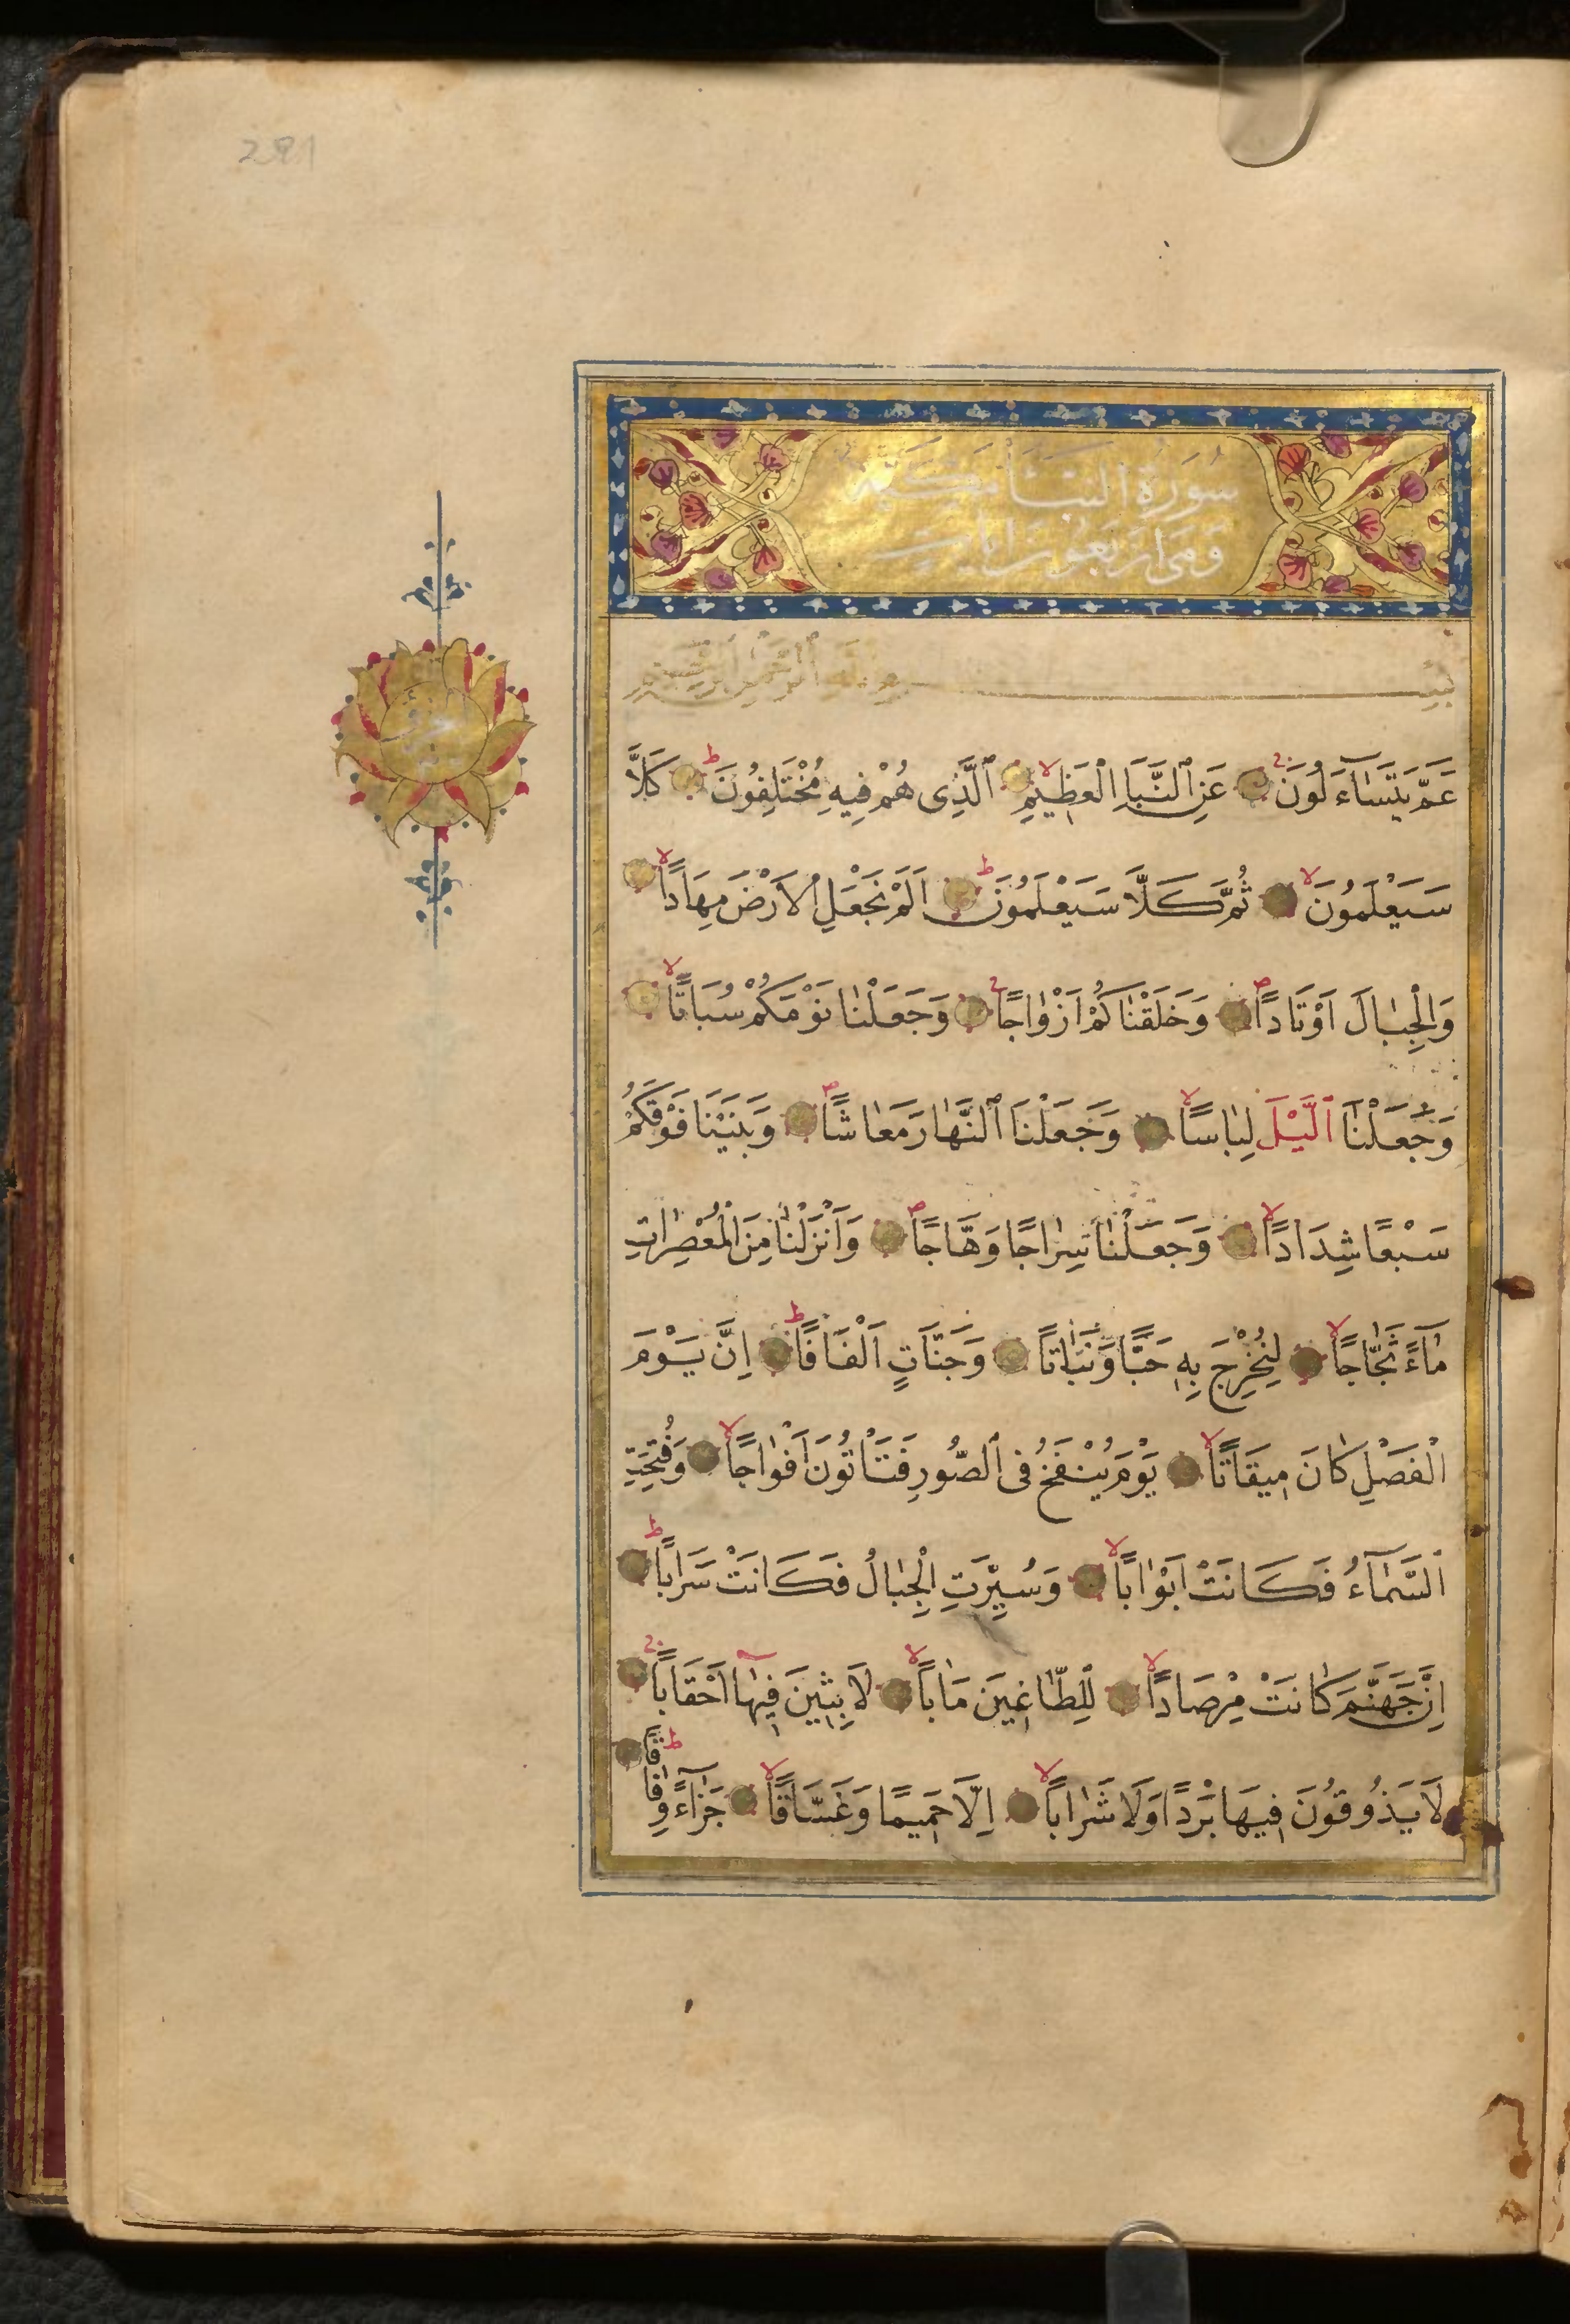 281
سُورَةُ النبَأ مَكِّيَّة
وَهِيَ اَرْبَعُونَ اٰيَات
بِسْمِ اللّٰهِ الرَّحْمٰنِ الرَّحِيمِ
عَمَّ يَتَسَاۤءَلُونَ عَنِ ٱلنَّبَأِ الْعَظِيمِ ٱلَّذِى هُمْ فِيهِ مُخْتَلِفُونَ كَلَّا
سَيَعْلَمُونَ ثُمَّ كَلَّا سَيَعْلَمُونَ اَلَمْ نَجْعَلِ الْاَرْضَ مِهَاداً
وَالْجِبَالَ اَوْتَاداً وَخَلَقْنَاكُمْ اَزْوَاجًا وَجَعَلْنَا نَوْمَكُمْ سُبَاتًا
وَجَعَلْنَا ٱلَّيْلَ لِبَاسًا وَجَعَلْنَا ٱلنَّهَارَ مَعَاشًا وَبَنَيْنَا فَوْقَكُمْ
سَبْعًا شِدَاداً وَجَعَلْنَا سِرَاجًا وَهَّاجًا وَاَنْزَلْنَا مِنَ الْمُعْصِرَاتِ
مَاۤءً ثَجَّاجًا لِنُخْرِجَ بِهٖ حَبًّا وَنَبَاتاً وَجَنَّاتٍ اَلْفَافًا اِنَّ يَوْمَ
الْفَصْلِ كَانَ مِيقَاتًا يَوْمَ يُنْفَخُ فِى ٱلصُّورِ فَتَاْتُونَ اَفْوَاجًا وَفُتِحَتِ
ٱلسَّمَاۤءُ فَكَانَتْ اَبْوَاباً وَسُيِّرَتِ الْجِبَالُ فَكَانَتْ سَرَاباً
اِنَّ جَهَنَّمَ كَانَتْ مِرْصَاداً لِلطَّاغِينَ مَاٰباً لَابِثِينَ فِيهَا اَحْقَاباً
لَا يَذُوقُونَ فِيهَا بَرْدًا وَلَا شَرَاباً اِلَّا حَمِيمًا وَغَسَّاقًا جَزَاۤءً وِفَاقًا